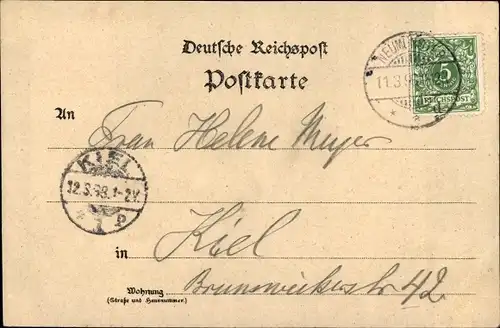 Deutsche Reichspost
Postkarte
11.3.9
5
REICHSPOST
An Frau Helene Meyer
KIEL
12.3.98.1-2N.
1 P
in Kiel
Wohnung
(Straße und Hausnummer)
Brunswiekerstr 42.